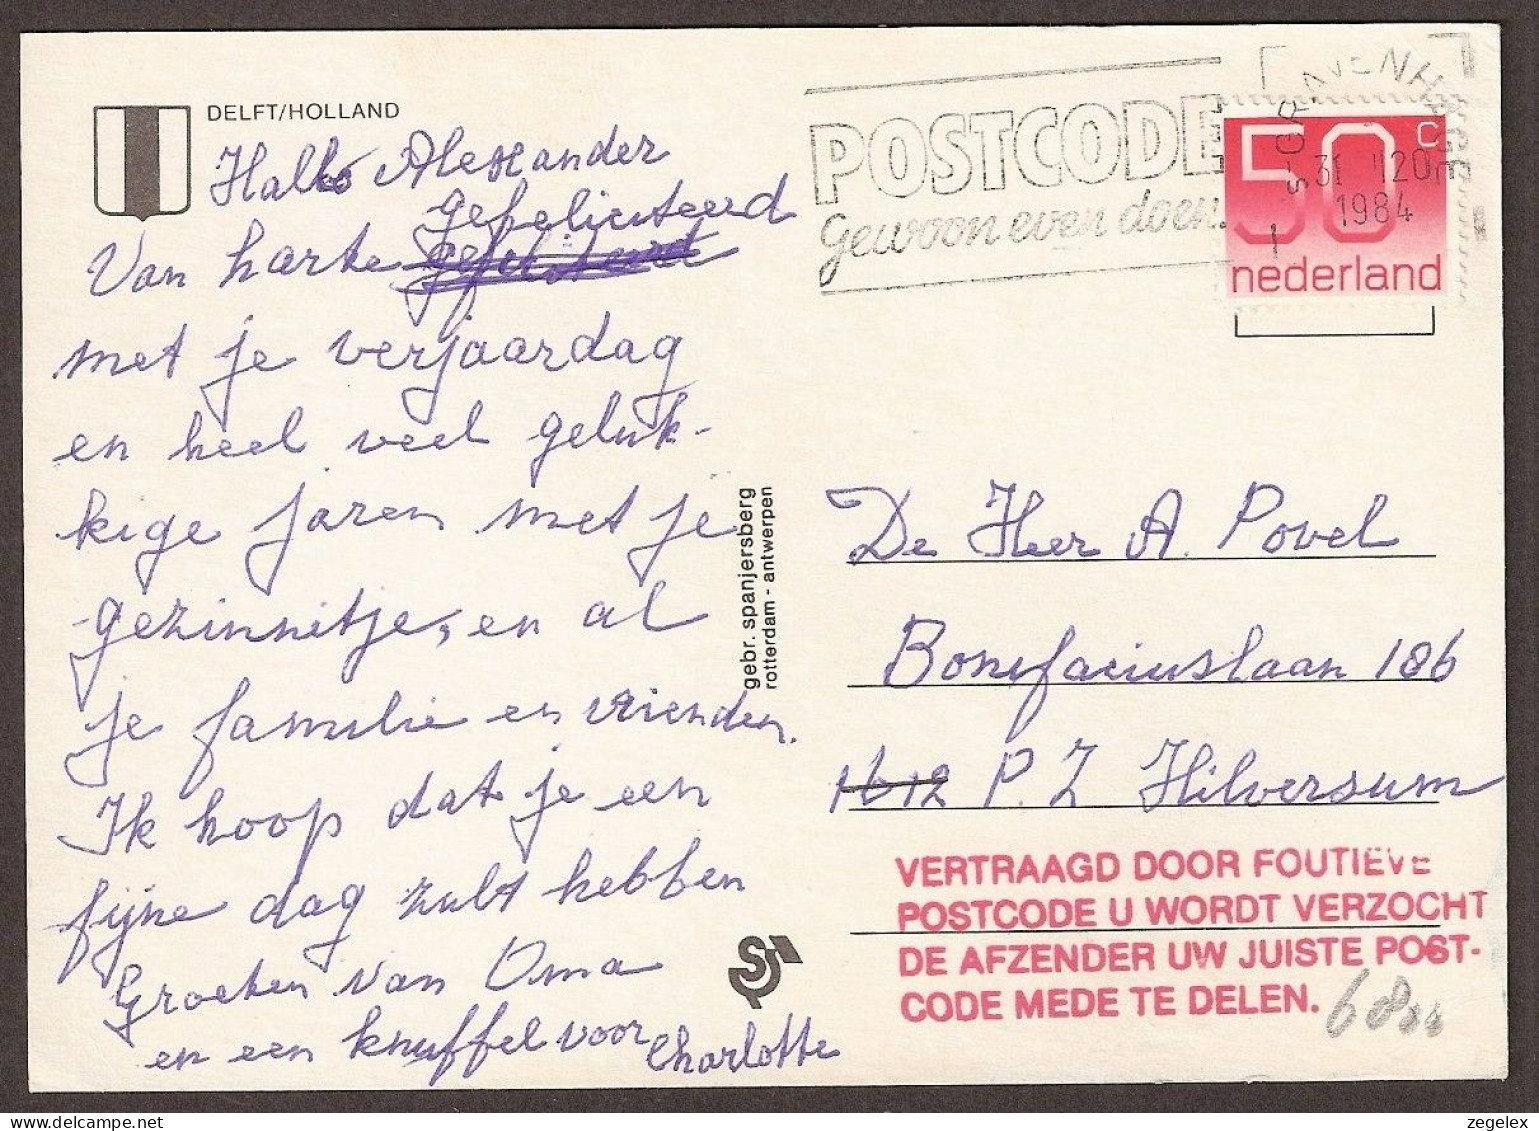 DELFT/HOLLAND
Hallo Alexander
Van harte gefeliciteerd
met je verjaardag
en heel veel geluk-
kige jaren met je
gezinnitje, en al
je familie en vrienden.
Ik hoop dat je een
fijne dag zult hebben
Groeten van Oma
en een knuffel voor Charlotte
gebr. spanjersberg
rotterdam - antwerpen
POSTCODE
Gewoon even doen.
'S-GRAVENHAGE
31 1 20
1984
50 c
nederland
De Heer A. Povel
Bonifaciuslaan 186
1612 P.Z Hilversum
VERTRAAGD DOOR FOUTIEVE
POSTCODE U WORDT VERZOCHT
DE AFZENDER UW JUISTE POST-
CODE MEDE TE DELEN.
zegelex
www.delcampe.net